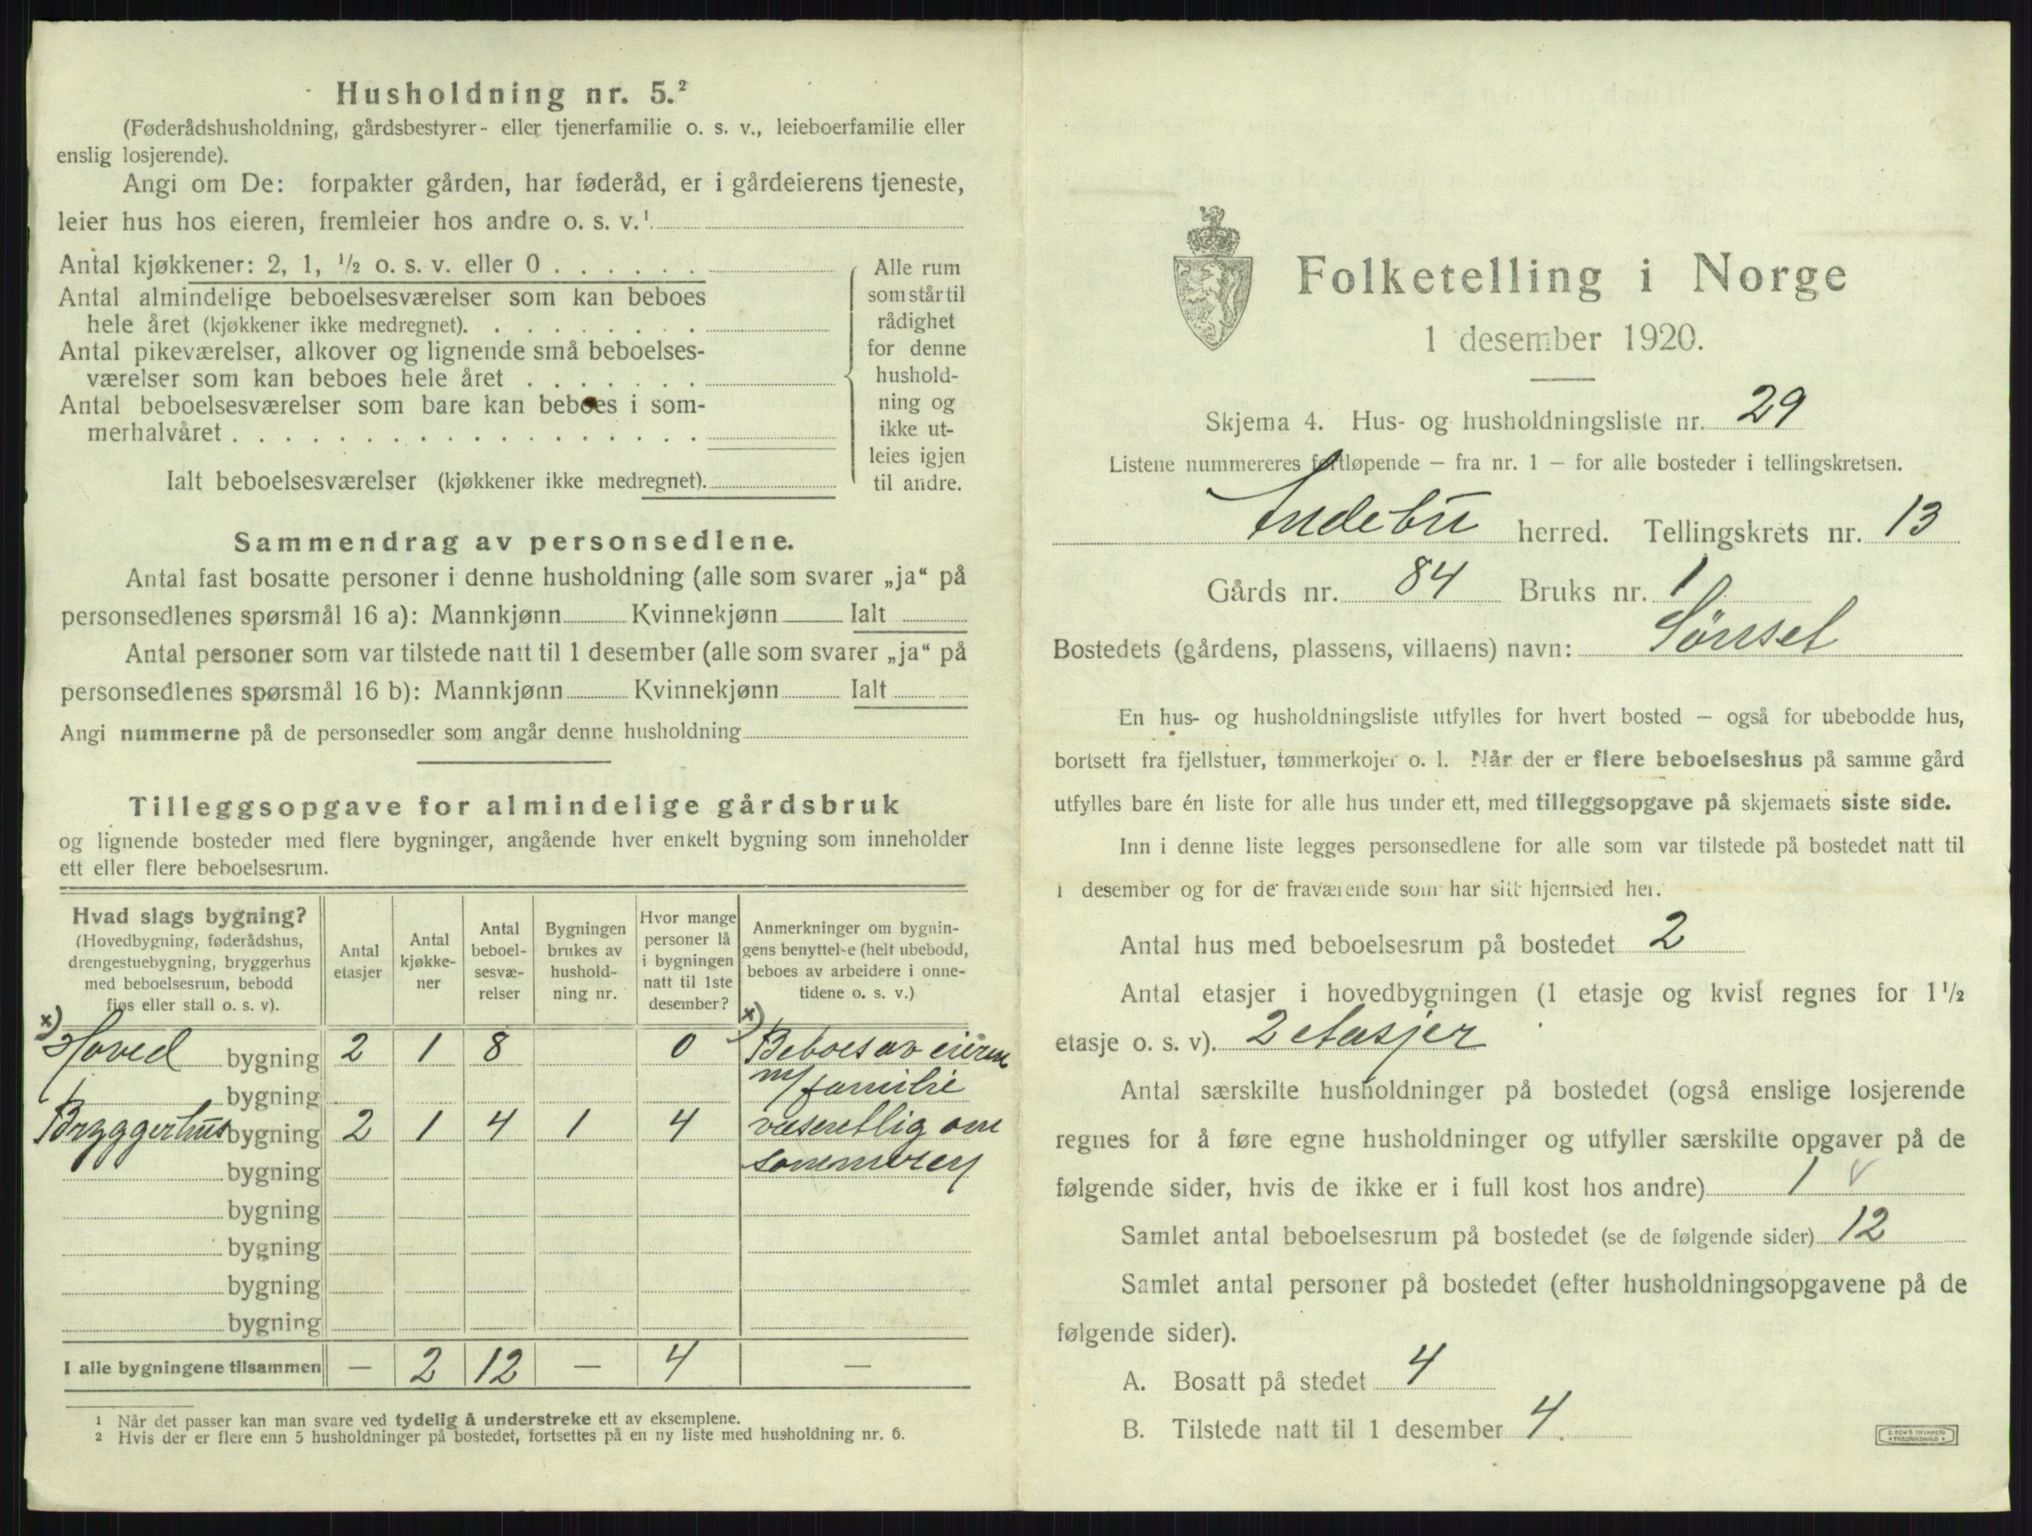 Husholdning nr. 5.²
(Føderådshusholdning, gårdsbestyrer- eller tjenerfamilie o. s. v., leieboerfamilie eller
enslig losjerende).
Angi om De: forpakter gården, har føderåd, er i gårdeierens tjeneste,
leier hus hos eieren, fremleier hos andre o. s. v.¹
Antal kjøkkener: 2, 1, ½ o. s. v. eller 0
Antal almindelige beboelsesværelser som kan beboes
hele året (kjøkkener ikke medregnet).
Antal pikeværelser, alkover og lignende små beboelses-
værelser som kan beboes hele året
Antal beboelsesværelser som bare kan beboes i som-
merhalvåret
Ialt beboelsesværelser (kjøkkener ikke medregnet).
Alle rum
som står til
rådighet
for denne
hushold-
ning og
ikke ut-
leies igjen
til andre.
Sammendrag av personsedlene.
Antal fast bosatte personer i denne husholdning (alle som svarer „ja“ på
personsedlenes spørsmål 16 a): Mannkjønn Kvinnekjønn Ialt
Antal personer som var tilstede natt til 1 desember (alle som svarer „ja“ på
personsedlenes spørsmål 16 b): Mannkjønn Kvinnekjønn Ialt
Angi nummerne på de personsedler som angår denne husholdning
Tilleggsopgave for almindelige gårdsbruk
og lignende bosteder med flere bygninger, angående hver enkelt bygning som inneholder
ett eller flere beboelsesrum.
Hvad slags bygning?
(Hovedbygning, føderådshus,
drengestuebygning, bryggerhus
med beboelsesrum, bebodd
fjøs eller stall o. s. v).
Antal
etasjer
Antal
kjøkke-
ner
Antal
beboel-
sesvæ-
relser
Bygningen
brukes av
hushold-
ning nr.
Hvor mange
personer lå
i bygningen
natt til 1ste
desember?
Anmerkninger om bygnin-
gens benyttelse (helt ubebodd,
beboes av arbeidere i onne-
tidene o. s. v.)
x) Hoved bygning 2 1 8 0 x) Beboes av eieren
bygning m/ familie
Bryggerhus bygning 2 1 4 1 4 væsentlig om
bygning sommeren
bygning
bygning
bygning
bygning
I alle bygningene tilsammen — 2 12 — 4 —
¹ Når det passer kan man svare ved tydelig å understreke ett av eksemplene.
² Hvis der er flere enn 5 husholdninger på bostedet, fortsettes på en ny liste med husholdning nr. 6.
Folketelling i Norge
1 desember 1920.
Skjema 4. Hus- og husholdningsliste nr. 29
Listene nummereres fortløpende – fra nr. 1 – for alle bosteder i tellingskretsen.
Andebu herred. Tellingskrets nr. 13
Gårds nr. 84 Bruks nr. 1
Bostedets (gårdens, plassens, villaens) navn: Sønset
En hus- og husholdningsliste utfylles for hvert bosted – også for ubebodde hus,
bortsett fra fjellstuer, tømmerkojer o. l. Når der er flere beboelseshus på samme gård
utfylles bare én liste for alle hus under ett, med tilleggsopgave på skjemaets siste side.
Inn i denne liste legges personsedlene for alle som var tilstede på bostedet natt til
1 desember og for de fraværende som har sitt hjemsted her.
Antal hus med beboelsesrum på bostedet 2
Antal etasjer i hovedbygningen (1 etasje og kvist regnes for 1½
etasje o. s. v). 2 etasjer
Antal særskilte husholdninger på bostedet (også enslige losjerende
regnes for å føre egne husholdninger og utfyller særskilte opgaver på de
følgende sider, hvis de ikke er i full kost hos andre) 1
Samlet antal beboelsesrum på bostedet (se de følgende sider) 12
Samlet antal personer på bostedet (efter husholdningsopgavene på de
følgende sider).
A. Bosatt på stedet 4
B. Tilstede natt til 1 desember 4.